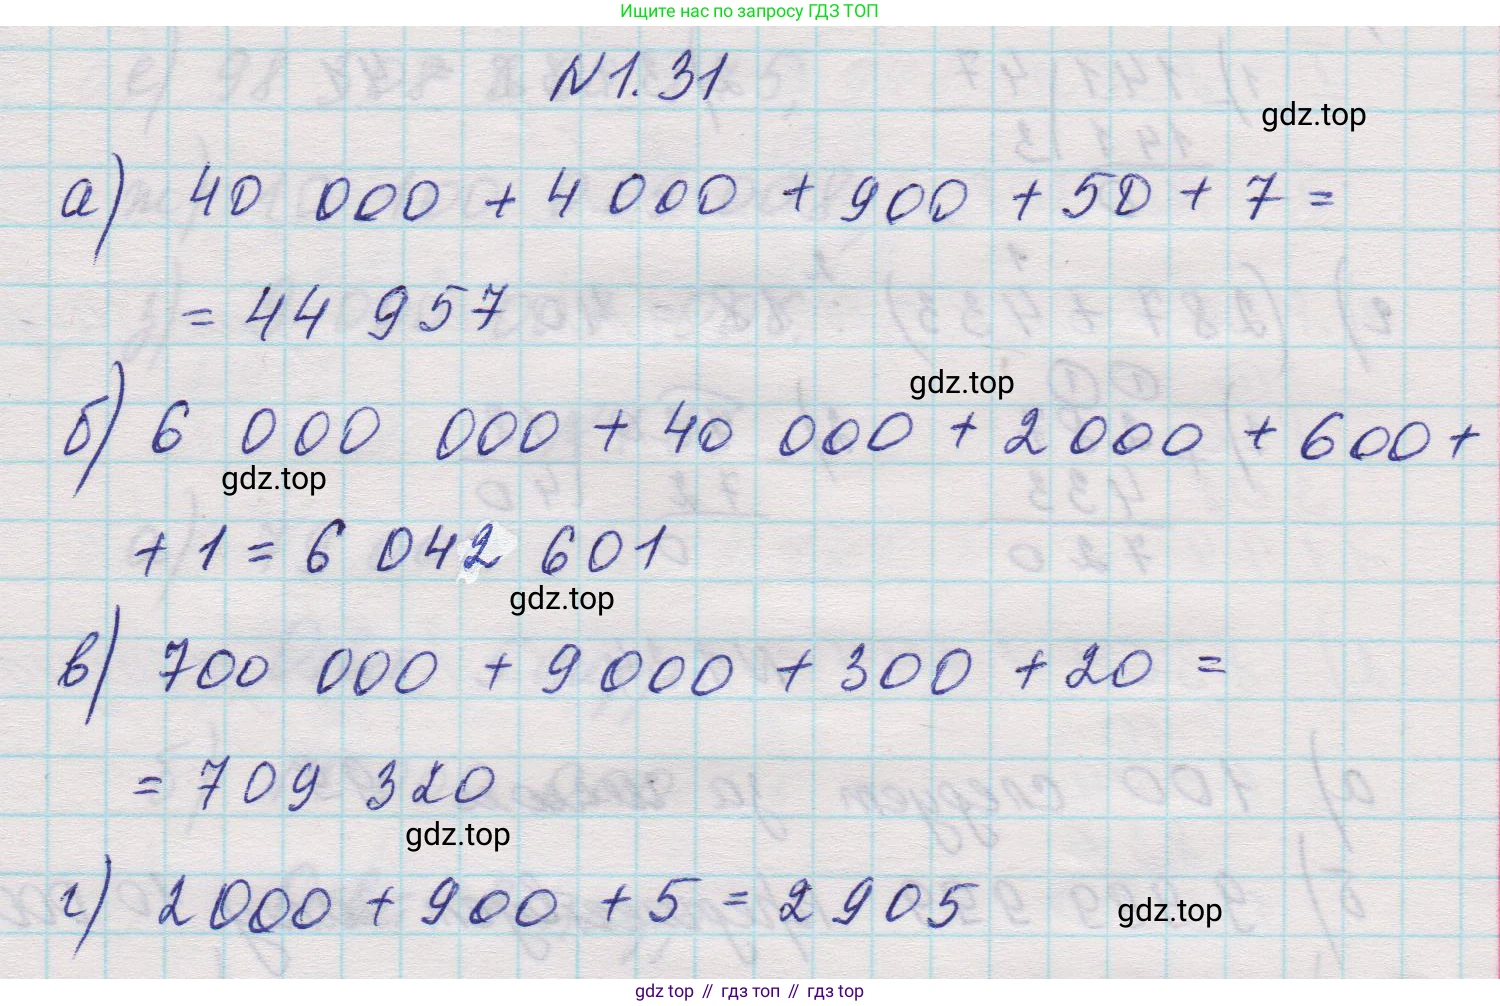 Ищите нас по запросу ГДЗ ТОП
N1.31
gdz.top
а) 40 000 + 4 000 + 900 + 50 + 7 =
= 44 957
gdz.top
б) 6 000 000 + 40 000 + 2 000 + 600 +
gdz.top
+ 1 = 6 042 601
gdz.top
в) 700 000 + 9 000 + 300 + 20 =
= 709 320
gdz.top
г) 2 000 + 900 + 5 = 2 905
gdz.top
gdz top // гдз топ // гдз top